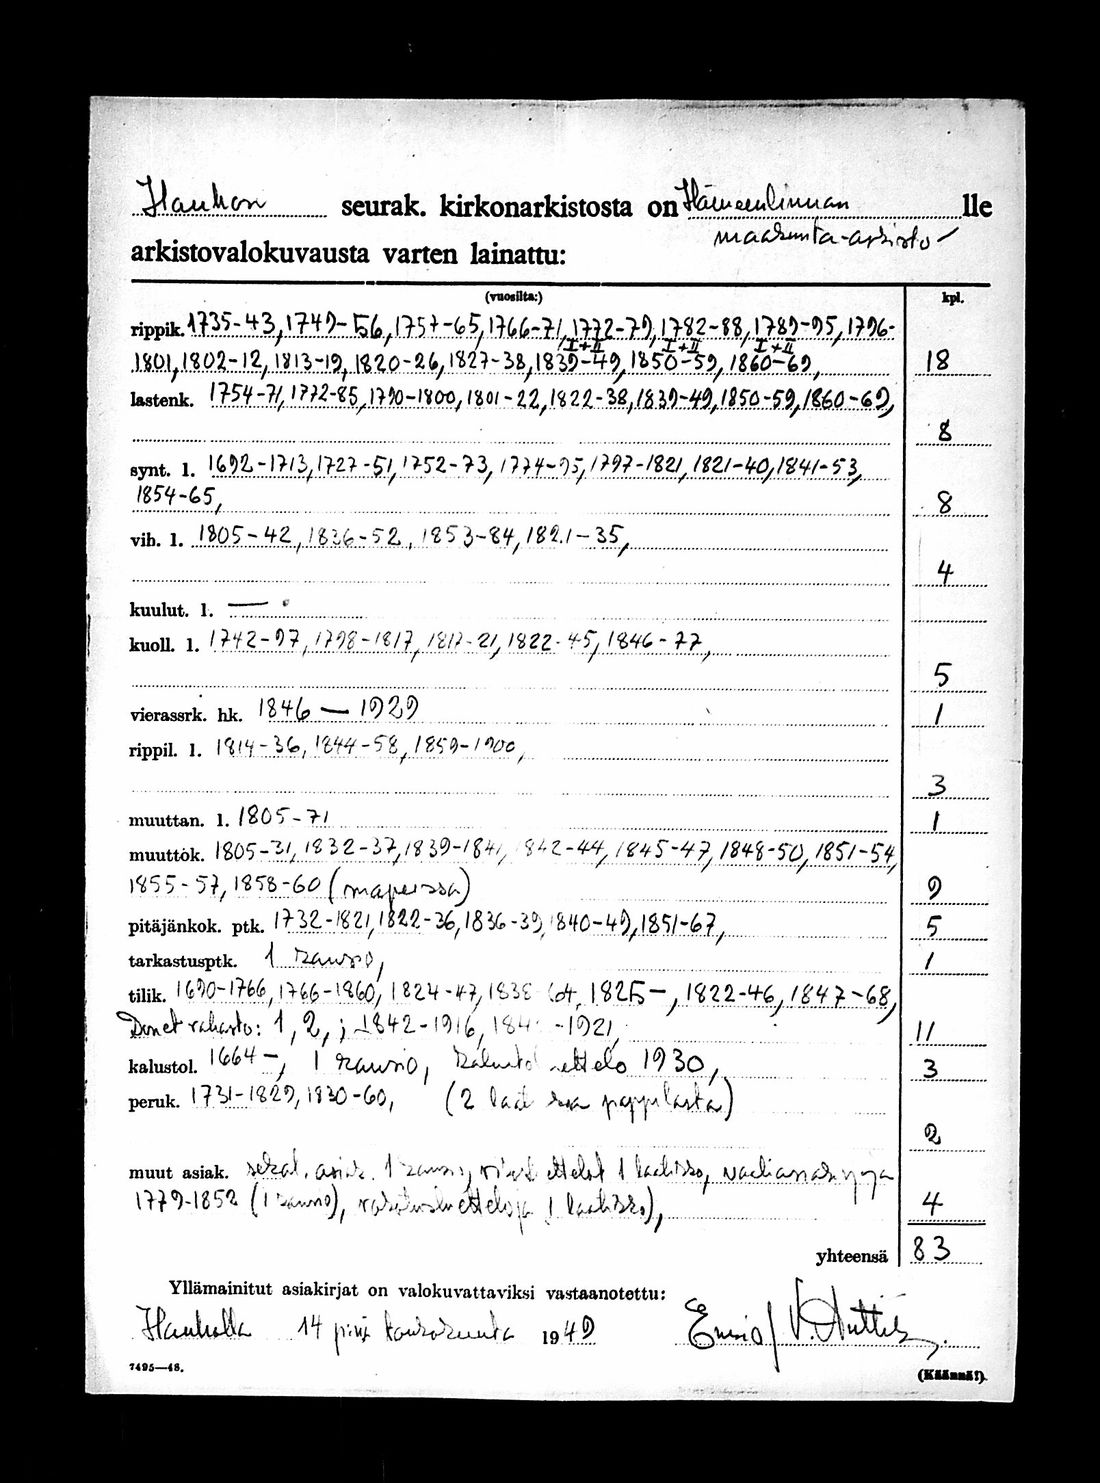 Hauhon seurak. kirkonarkistosta on Hämeenlinnan lle
maakunta-arkisto-
arkistovalokuvausta varten lainattu:
(vuosilta:) kpl.
rippik. 1735-43, 1749-56, 1757-65, 1766-71, 1772-79, 1782-88, 1789-95, 1796-
I+II I+II I+II
1801, 1802-12, 1813-19, 1820-26, 1827-38, 1839-49, 1850-59, 1860-69, 18
lastenk. 1754-71, 1772-85, 1790-1800, 1801-22, 1822-38, 1839-49, 1850-59, 1860-69,
8
synt. l. 1692-1713, 1727-51, 1752-73, 1774-95, 1797-1821, 1821-40, 1841-53,
1854-65, 8
vih. l. 1805-42, 1836-52, 1853-84, 1821-35,
4
kuulut. l. —
kuoll. l. 1742-97, 1798-1817, 1817-21, 1822-45, 1846-77,
5
vierassrk. hk. 1846 — 1929 1
rippil. l. 1814-36, 1844-58, 1859-1900,
3
muuttan. l. 1805-71 1
muuttok. 1805-31, 1832-37, 1839-1841, 1842-44, 1845-47, 1848-50, 1851-54,
1855-57, 1858-60 (mapeissa) 9
pitäjänkok. ptk. 1732-1821, 1822-36, 1836-39, 1840-49, 1851-67, 5
tarkastusptk. 1 kansio, 1
tilik. 1690-1766, 1766-1860, 1824-47, 1838-64, 1825-, 1822-46, 1847-68,
rahasto: 1, 2, ; 1842-1916, -1921, 11
kalustol. 1664-, 1 kansio, 1930, 3
peruk. 1731-1829, 1830-60, (2 pappilasta)
2
muut asiak. sekal. asiak. 1 kansio, 1 laatikko,
1779-1852 (1 kansio), 1 laatikko), 4
yhteensä 83
Yllämainitut asiakirjat on valokuvattaviksi vastaanotettu:
Hauholla 14 p:nä kuuta 1949
7495—48. (Käännä!).